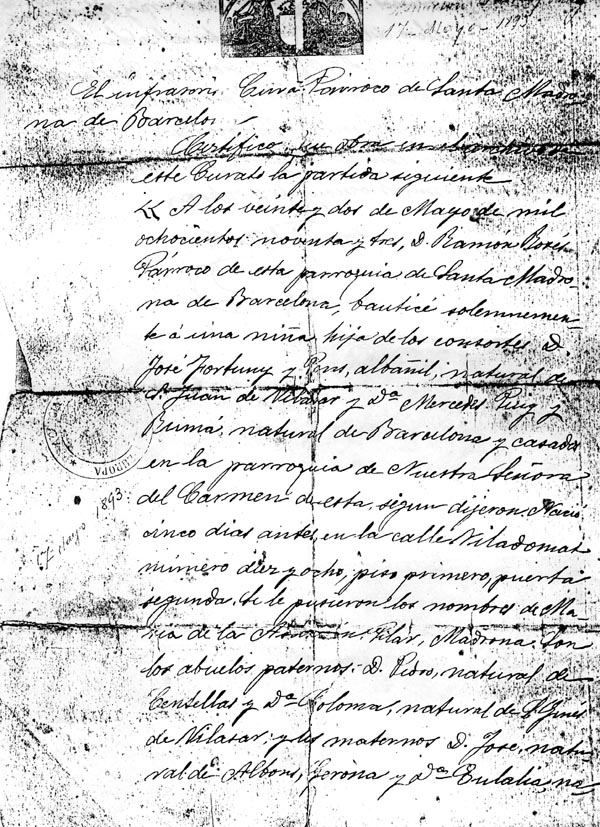 17 Mayo 1893
El infrascrito Cura Párroco de Santa Madro-
na de Barcelona
Certifico que obra en el archivo de
este Curato la partida siguiente
« A los veinte y dos de Mayo de mil
ochocientos noventa y tres, D. Ramón
Párroco de esta parroquia de Santa Madro-
na de Barcelona, bauticé solemnemen-
te á una niña hija de los consortes D.
José Fortuny y Pons, albañil, natural de
S. Juan de Vilasar y Dª Mercedes Puig y
natural de Barcelona y casados
en la parroquia de Nuestra Señora
del Carmen de esta, segun dijeron. Nació
cinco dias antes, en la calle Viladomat
número diez y ocho, piso primero, puerta
segunda. Se le pusieron los nombres de Ma-
ria de la Pilar, Madrona. Son
los abuelos paternos: D. Pedro, natural de
Censellas y Dª Coloma, natural de S. Ginés
de Vilasar; y los maternos D. José, natu-
ral de Albons, Gerona y Dª Eulalia, na-
EUROPA
17 Mayo 1893